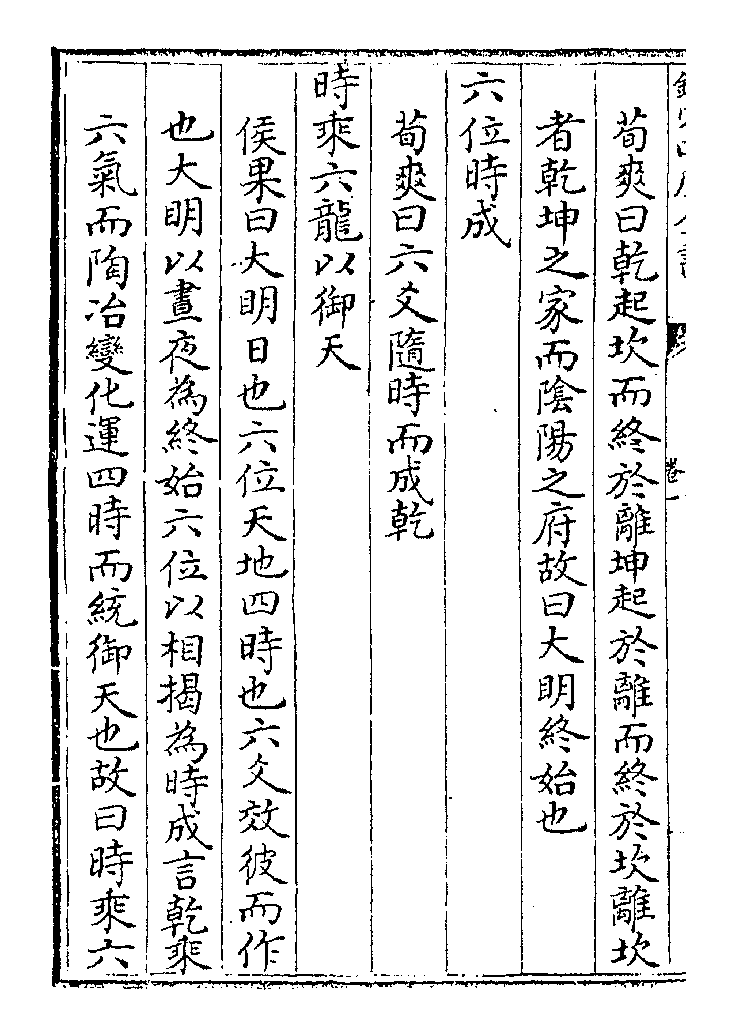 荀爽曰乾起坎而終於離坤起於離而終於坎離坎
者乾坤之家而陰陽之府故曰大明終始也
六位時成
荀爽曰六爻隨時而成乾
時乘六龍以御天
侯果曰大明日也六位天地四時也六爻效彼而作
也大明以晝夜為終始六位以相揭為時成言乾乘
六氣而陶冶變化運四時而統御天也故曰時乘六
卷一